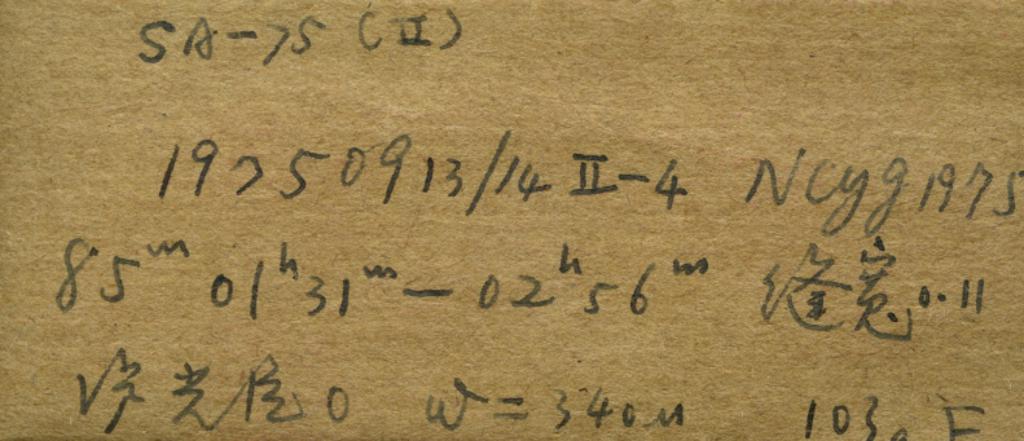 SA-75 (II)
19750913/14 II-4 NCyg1975
85m 01h31m-02h56m 缝宽0.11
光 0 w=340u 103a F